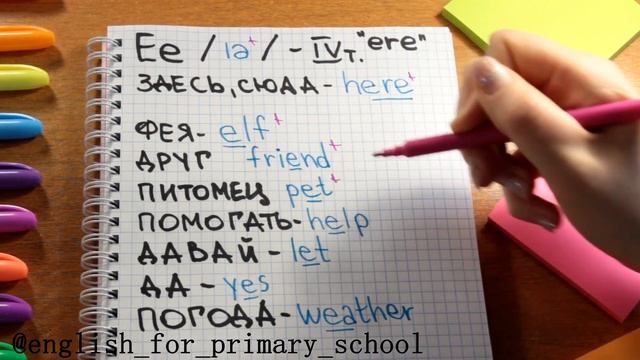 Ee /ıə+/ - IVт. "ere"
ЗДЕСЬ, СЮДА - here+
ФЕЯ - elf+
ДРУГ friend+
ПИТОМЕЦ pet+
ПОМОГАТЬ - help
ДАВАЙ - let
ДА - yes
ПОГОДА - weather
@english_for_primary_school